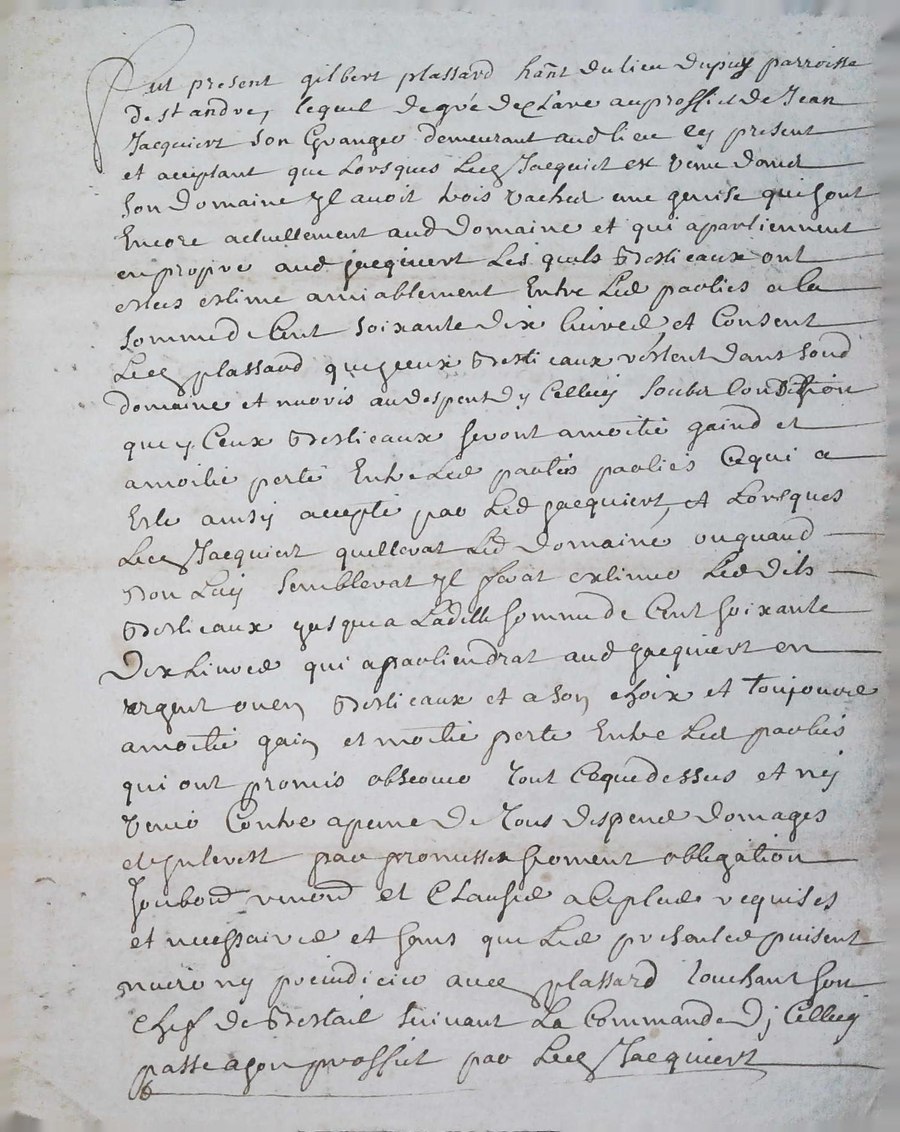 Fut present gilbert plassard hãnt du lieu dupuy parroisse
de st andre, lequel de gré declare auproffict de Jean
Jacquiert son Granger demeurant aud lieu cy present
et aceptant que Lorsques Led Jacquiert est venu dans
son domaine yl avoit trois vaches une genise qui sont
Encore actuellement aud domaine et qui apartiennent
en propre aud jacquiert Les quels Bestieaux ont
estes estime amiablement Entre Les parties a la
somme de Cent soixante dix livres, et Consent
Led plassard que yceux Bestieaux restent dans sond
domaine et nuoris au despent dy Celluy soubz Condition
que y Ceux Bestieaux seront amoitié gaind et
amoitié perte Entre Les parties Ce qui a
Este ainsy accepté par Led jacquiert, et Lorsques
Led Jacquiert quitterat Led Domaine ou quand
Bon Luy semblerat yl serat extimer Les dits
Bestieaux jusque a Laditte somme de Cent soixante
Dix Livres qui apartiendrat aud jacquiert en
argent ou en Bestieaux et a son choix et toujours
amoitié gain et moitié perte Entre Les parties
qui ont promis observer tout Ceque dessus et ny
venir Contre apeine de tous despens domages
et ynterest par promesse serment obligation
soubmd renond et Clauses a Ce plus requises
et necessaires et sans que Les presentes puisent
nuire ny preiudicier aud plassard touchant son
Chef de Bestail suivant La Commande dy Celluy
passe a son proffict par Led Jacquiert